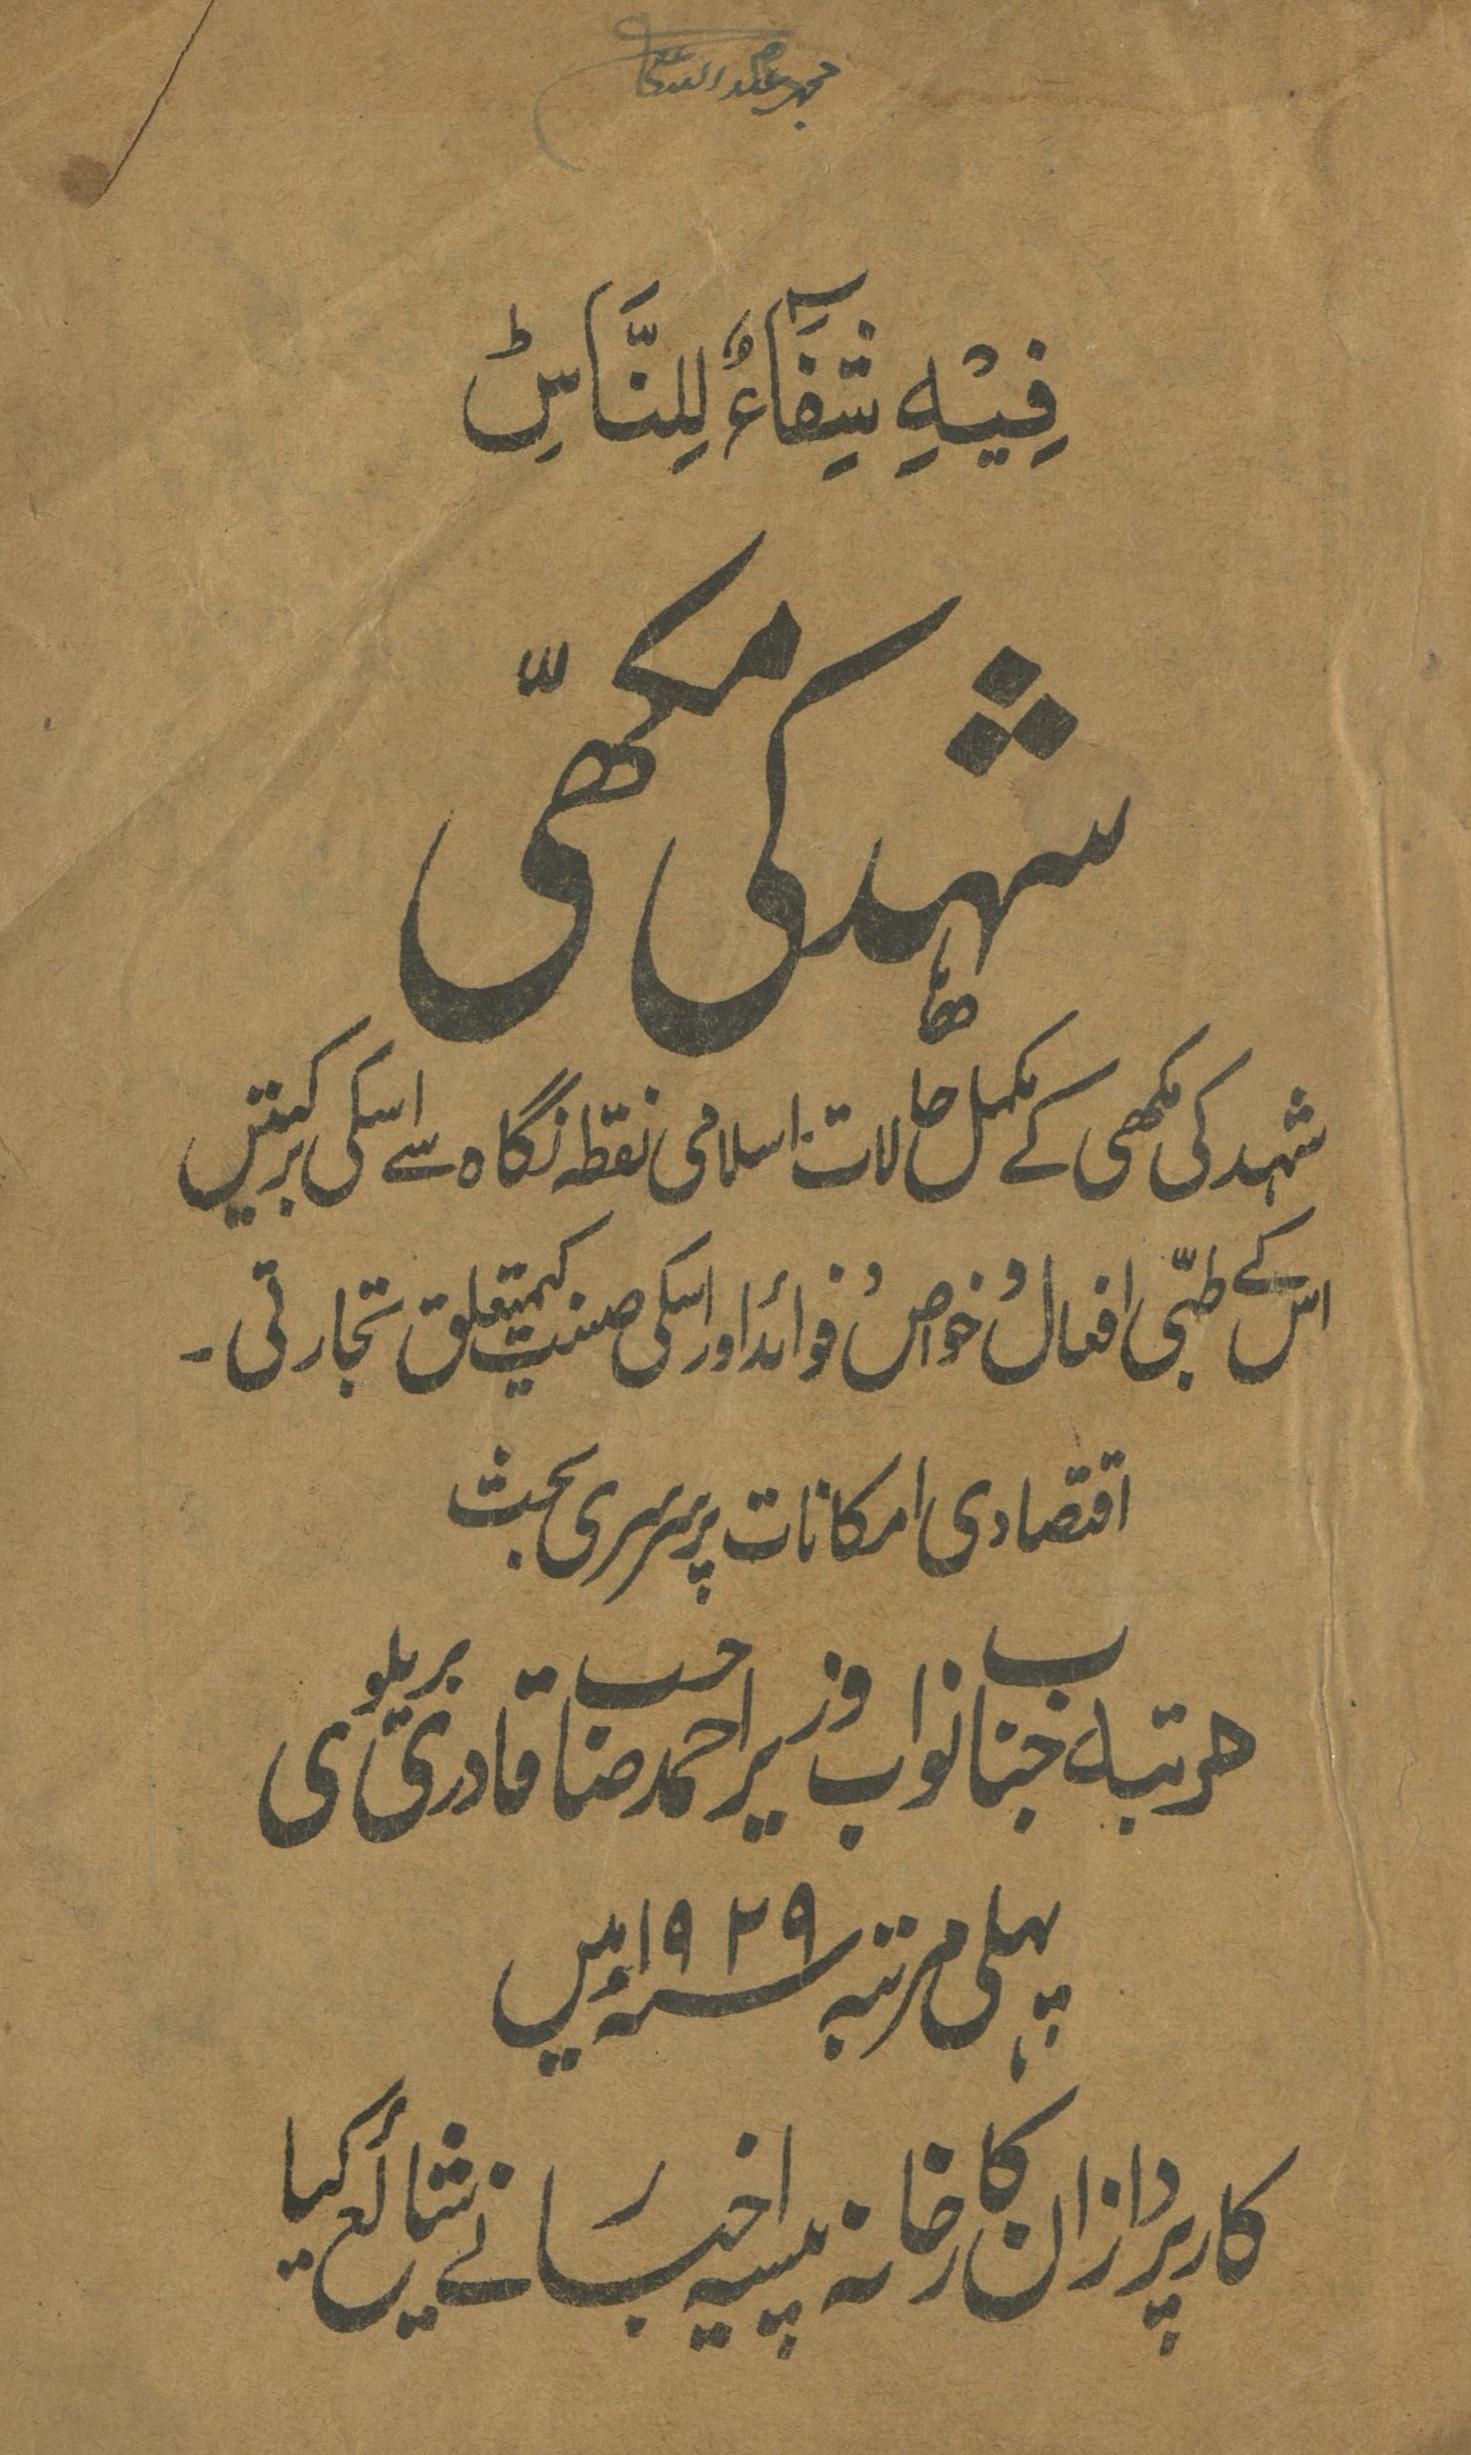 فِيْهِ شِفَآءٌ لِلنَّاسِ ط
شہد کی مکھّی
شہد کی مکھی کے مکمل حالات۔ اسلامی نقطہ نگاہ سے اسکی برکیتں
اس کے طبّی افعال و خواص و فوائد اور اسکی صنعت کیمتعلق تجارتی۔
اقتصادی امکانات پر سرسری بحث
مرتبہ جناب نواب وزیر احمد صاحب قادری بریلوی
پہلی مرتبہ ۱۹۲۹ء میں
کار پردازان کارخانہ پیسہ اخبار نے شائع کیا